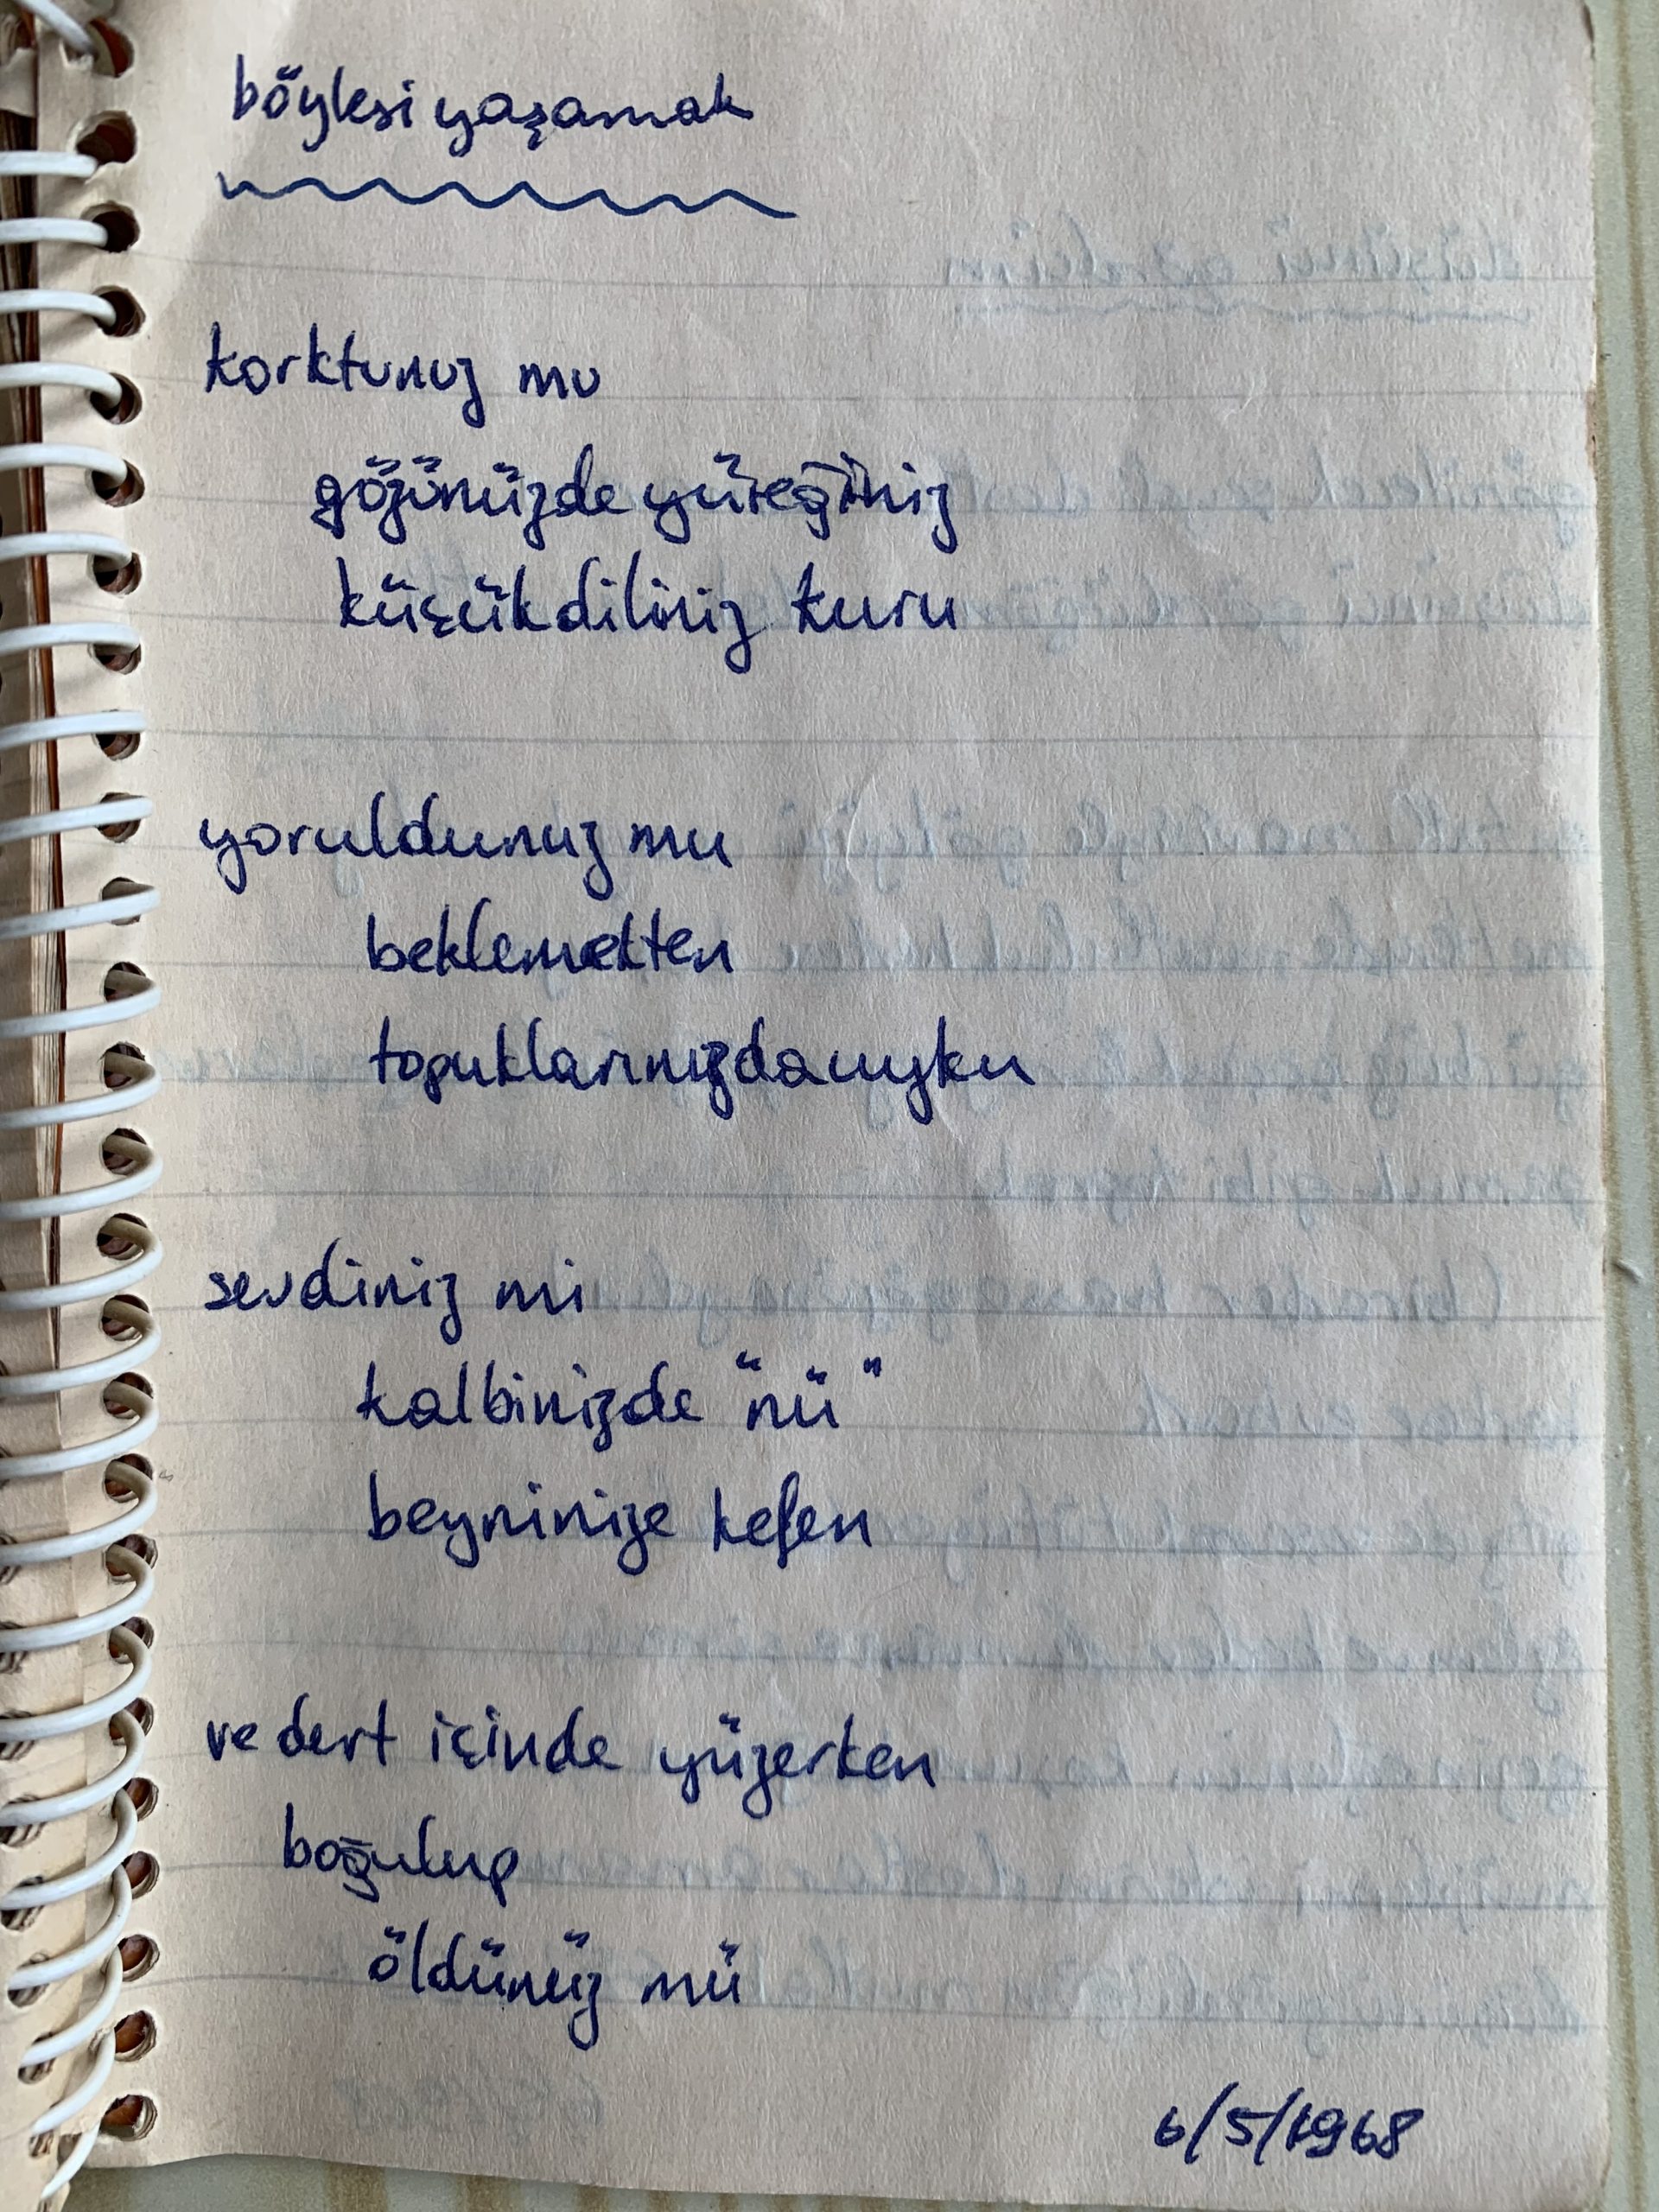 böylesi yaşamak
korktunuz mu
gözünüzde yüreğiniz
küçükdiliniz kuru
yoruldunuz mu
beklemekten
topuklarınızda uyku
sevdiniz mi
kalbinizde "nü"
beyninize kefen
ve dert içinde yüzerken
boğulup
öldünüz mü
6/5/1968